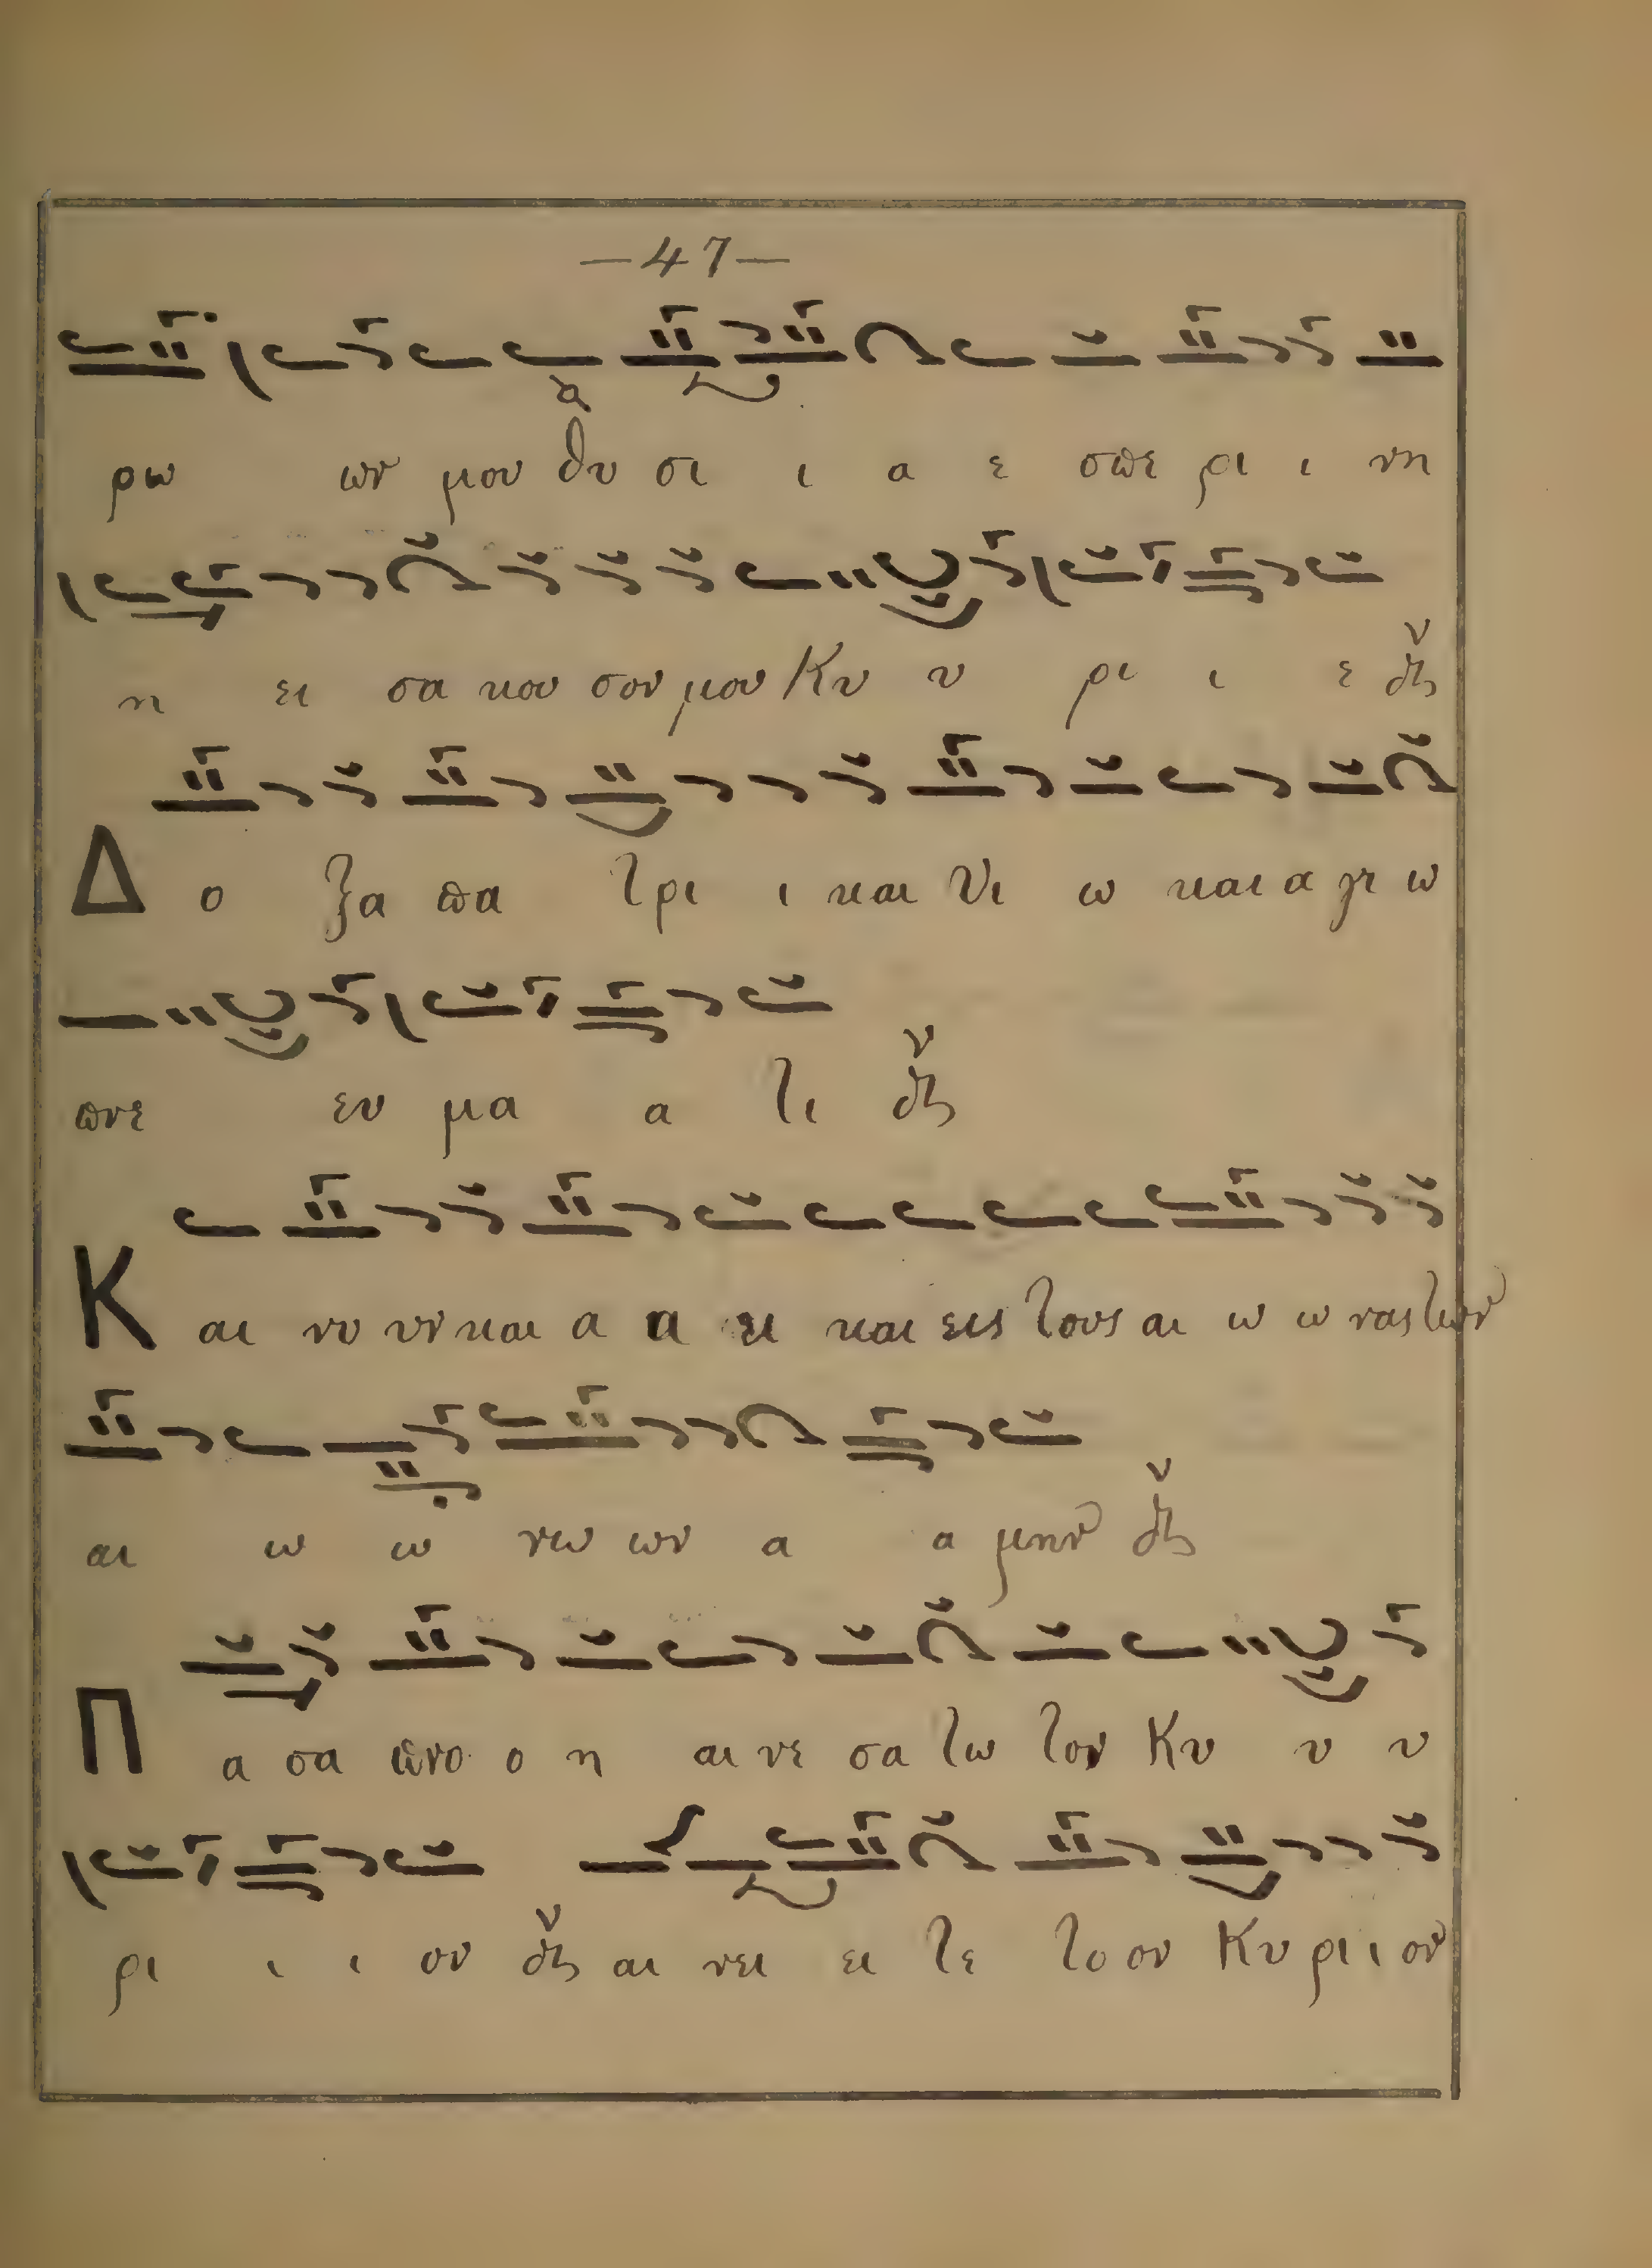 —47—
ρω ων μου θυ σι ι α ε σπε ρι ι νη
η ει σα κου σον μου Κυ υ ρι ι ε
Δ ο ξα πα τρι ι και Υι ω και α γι ω
πνε ευ μα α τι
Κ αι νυ υν και α α ει και εις τους αι ω ω νας των
αι ω ω νω ων α α μην
Π α σα πνο ο η αι νε σα τω τον Κυ υ υ
ρι ι ι ον αι νει ει τε το ον Κυ ρι ι ον